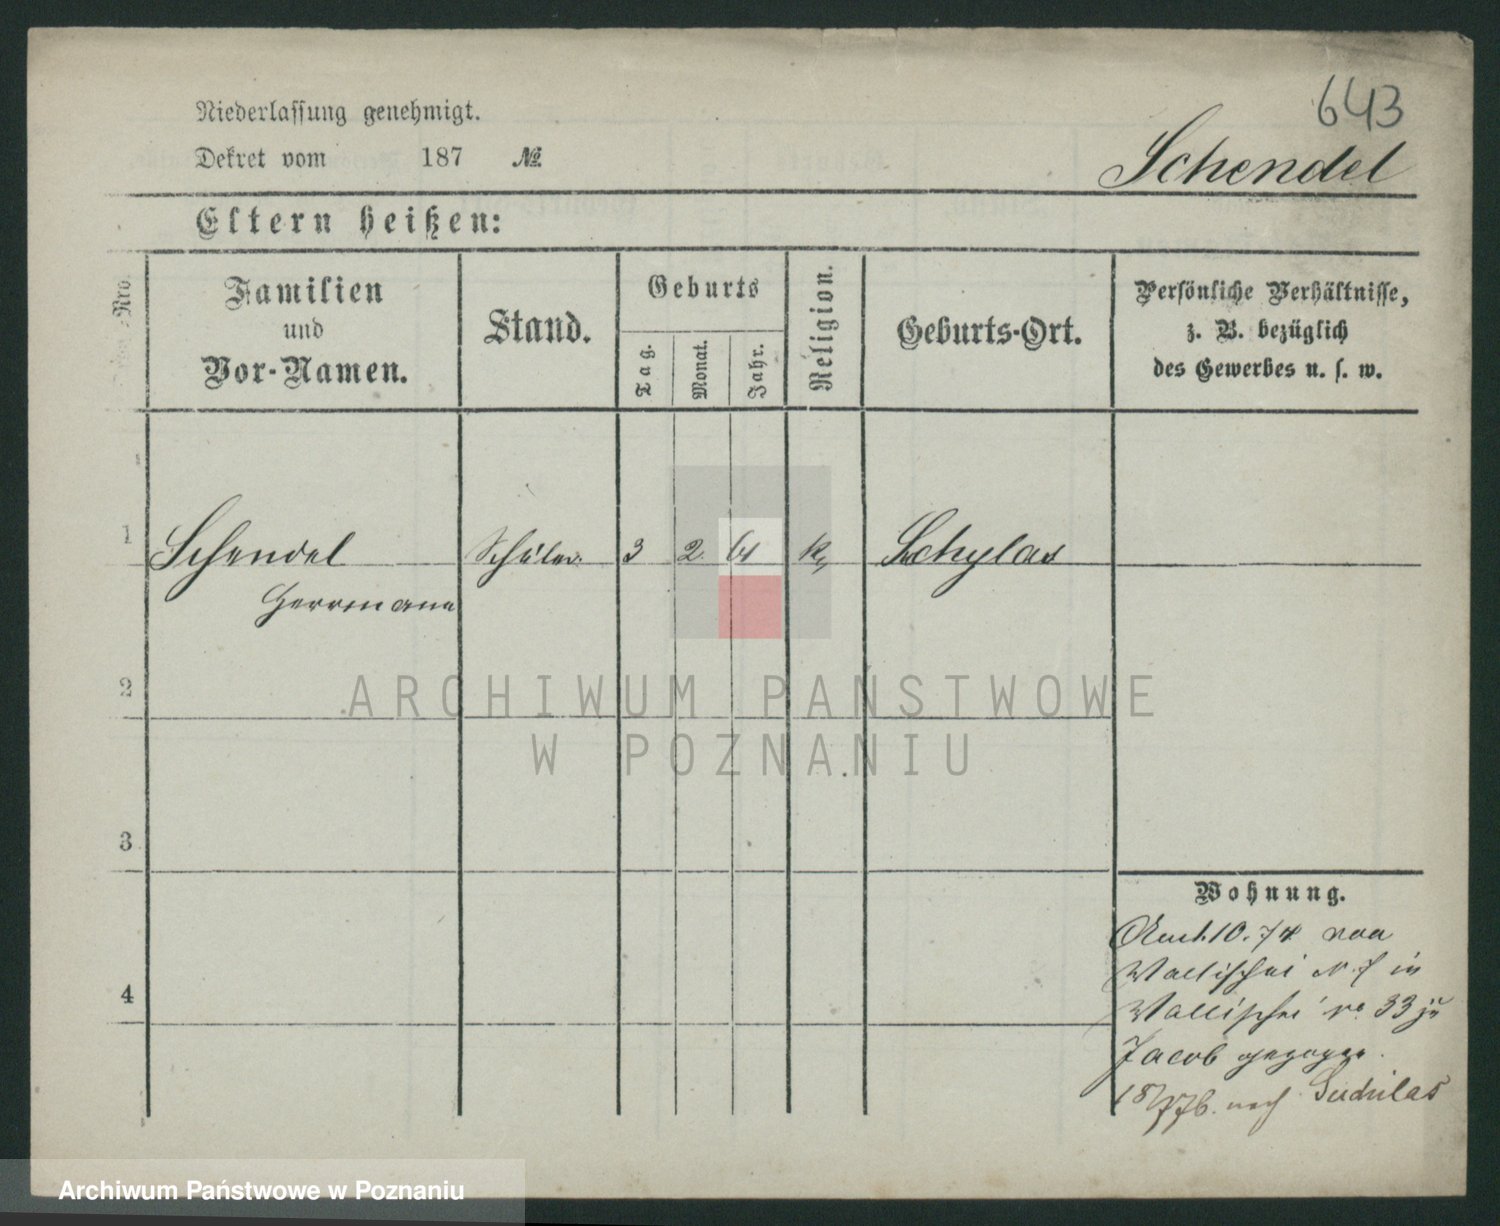 643
Niederlassung genehmigt.
Dekret vom 187 №
Schendel
Eltern heißen:
Nro.
Familien
und
Vor-Namen.
Stand.
Geburts
Tag.
Monat.
Jahr.
Religion.
Geburts-Ort.
Persönliche Verhältnisse,
z. B. bezüglich
des Gewerbes u. s. w.
1
Schendel Schüler 3 2 61 k
Herrmann
2
ARCHIWUM PAŃSTWOWE
W POZNANIU
3
Wohnung.
10. 74 von
Wallischei N. 7 in
4
Wallischei no 33 zu
Jacob gezogen.
nach
Archiwum Państwowe w Poznaniu